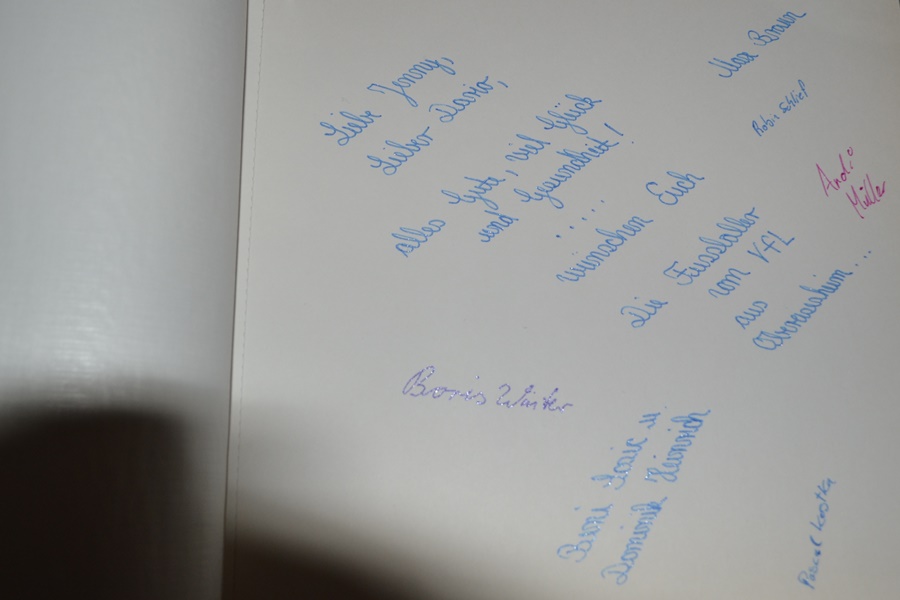 Liebe Jenny,
Lieber Dario,
alles Gute, viel Glück
und Gesundheit!
.....
wünschen Euch
Die Fussballer
vom VfL
aus
...
Max Braun
Robin
André
Müller
Boris Winter
u.
Dominik Heinrich
Pascal